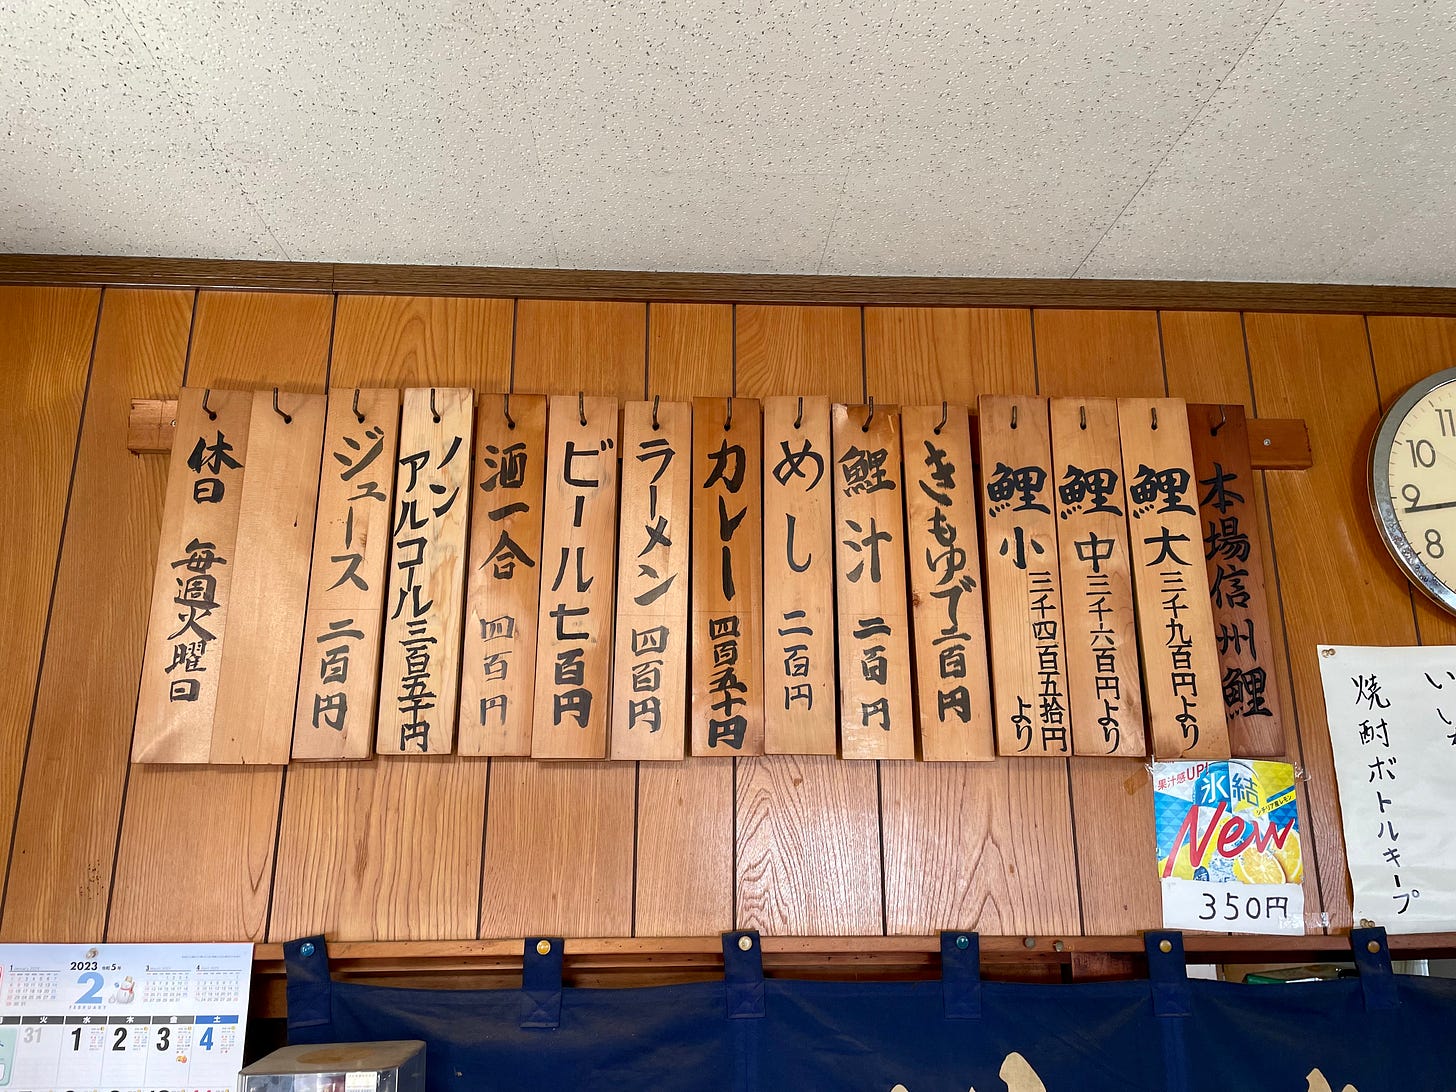 本場信州鯉
鯉大 三千九百円より
鯉中 三千六百円より
鯉小 三千四百五拾円より
きもゆで 二百円
鯉汁 二百円
めし 二百円
カレー 四百五十円
ラーメン 四百円
ビール 七百円
酒一合 四百円
ノンアルコール 三百五十円
ジュース 二百円
休日 毎週火曜日
焼酎ボトルキープ
果汁感UP!
氷結
シチリア産レモン
New
350円
11
10
9
8
2023 令和5年
2
FEBRUARY
火 水 木 金 土
31 1 2 3 4